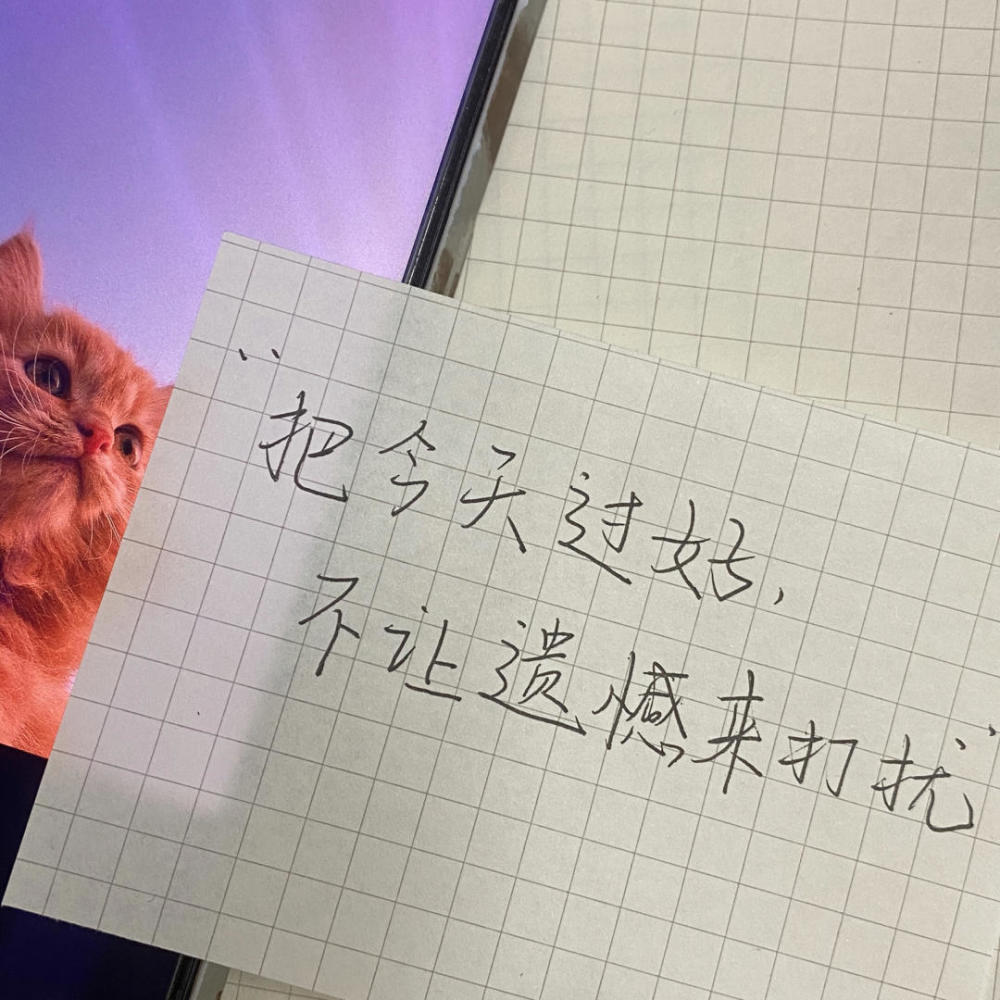 “把今天过好，
不让遗憾来打扰”